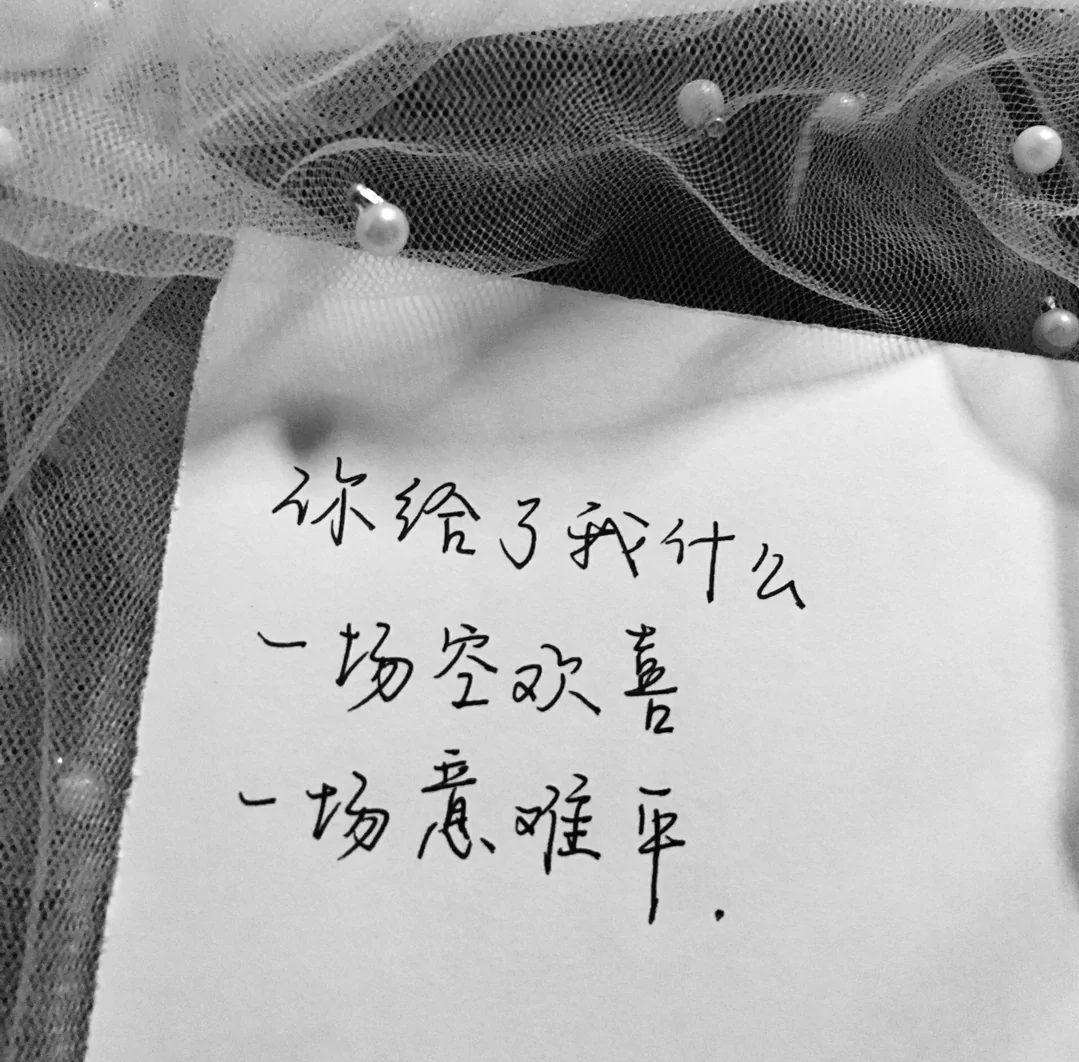 你给了我什么
一场空欢喜
一场意难平.